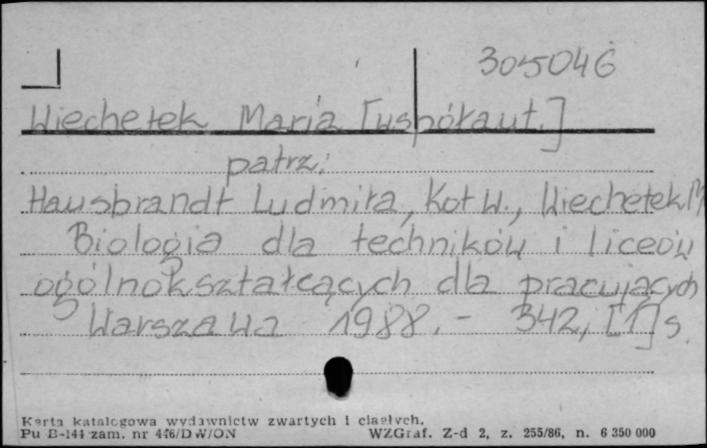 305046
Wiechetek Maria [współaut.]
patrz:
Hausbrandt Ludmiła, Kot W., Wiechetek M
Biologia dla techników i liceów
ogólnokształcących dla pracujących
Warszawa 1988. - 342, [1] s.
Karta katalogowa wydawnictw zwartych i ciągłych.
Pu B-144 zam. nr 446/DW/ON WZGraf. Z-d 2, z. 255/86, n. 6 350 000